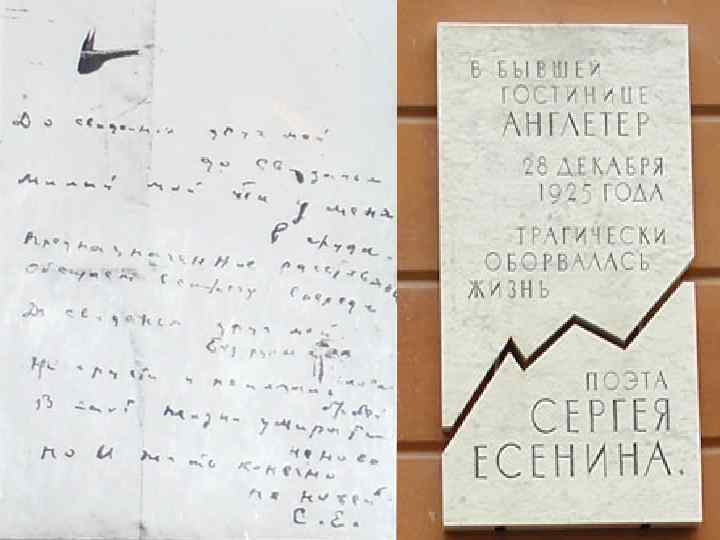 До свиданья друг мой
до свиданья
Милый мой ты у меня
в груди.
Предназначенное расставанье
Обещает встречу впереди
До свиданья друг мой
без руки
Не грусти и не печаль
бровей
В этой жизни умирать
не ново
но и жить конечно
не новей.
С.Е.
В БЫВШЕЙ
ГОСТИНИЦЕ
АНГЛЕТЕР
28 ДЕКАБРЯ
1925 ГОДА
ТРАГИЧЕСКИ
ОБОРВАЛАСЬ
ЖИЗНЬ
ПОЭТА
СЕРГЕЯ
ЕСЕНИНА.